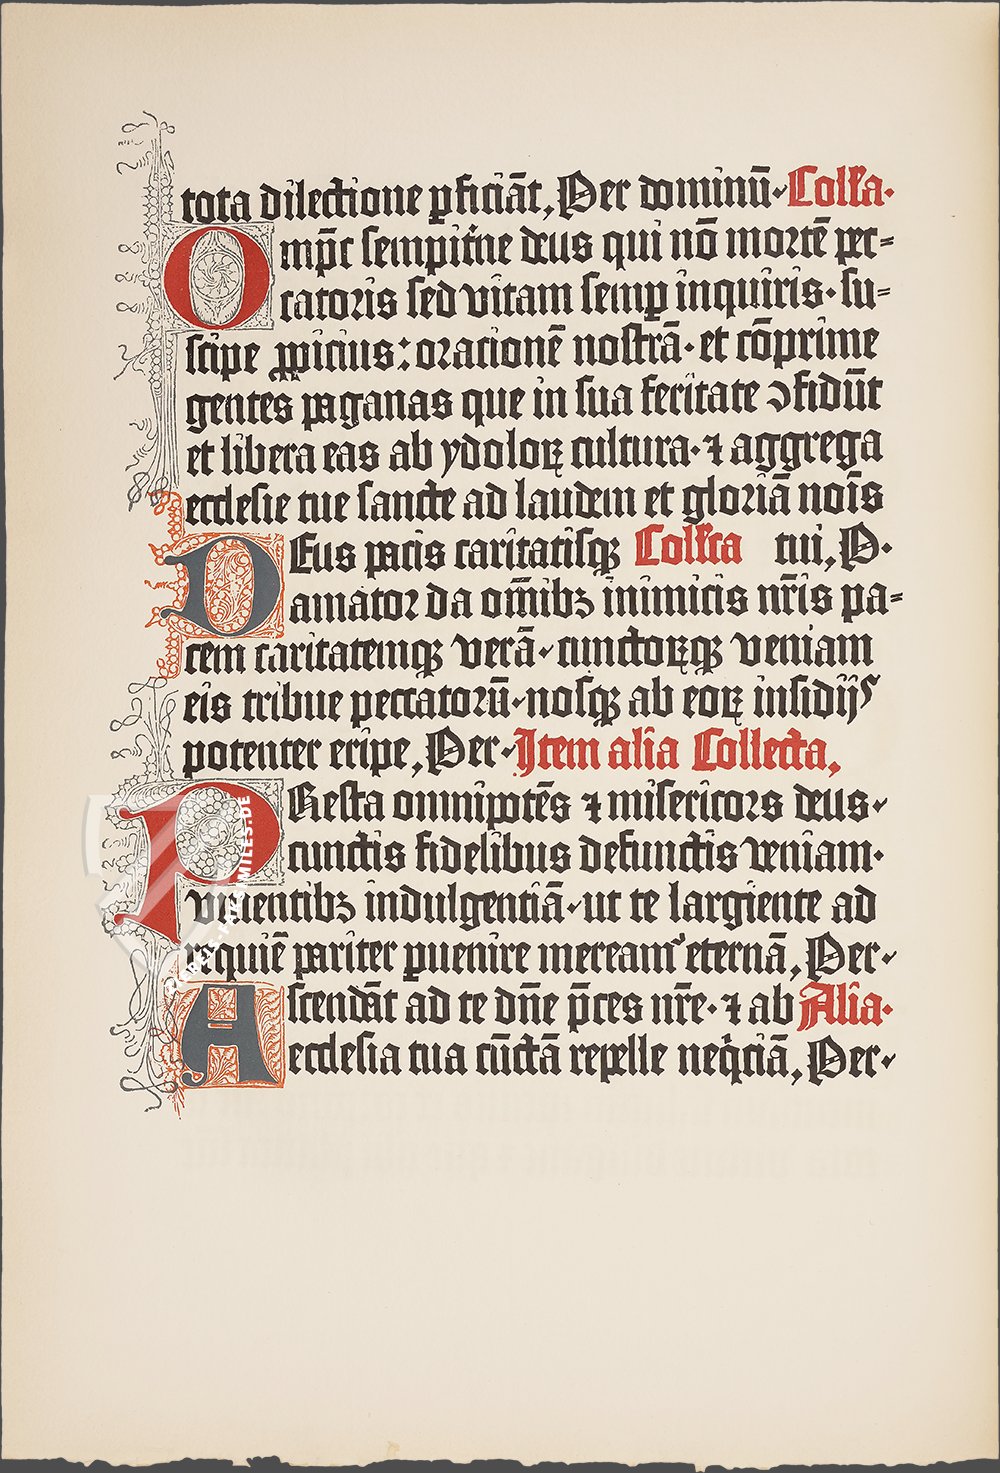 tota dilectione ꝑficiāt, Per dominū Coll'a.
Omp̄t sempit'ne deus qui nō mortē pec=
catoris sed vitam semꝑ inquiris. su=
scipe ꝓpicius: orationē nostrā. et cōprime
gentes paganas que in sua feritate ꝯfidūt
et libera eas ab ydoloꝝ cultura. ⁊ aggrega
ecclesie tue sancte ad laudem et gloriā nois̄
DEus pacis caritatisqꝫ Coll'cta tui, P.
amator da om̄ibꝫ inimicis nr̄is pa=
cem caritatemqꝫ verā cunctoꝝqꝫ veniam
eis tribue peccatorū nosqꝫ ab eoꝝ insidijs
potenter eripe, Per Item alia Collecta,
PResta omnipotēs ⁊ misericors deus
cunctis fidelibus defunctis veniam.
viuentibꝫ indulgentiā ut te largiente ad
requiē pariter ꝑuenire mereamᷣ eternā, Per
Ascendāt ad te dn̄e p̄ces nr̄e. ⁊ ab Alia.
ecclesia tua cūctā repelle neq̇ciā, Per
ZIEREIS-FAKSIMILES.DE